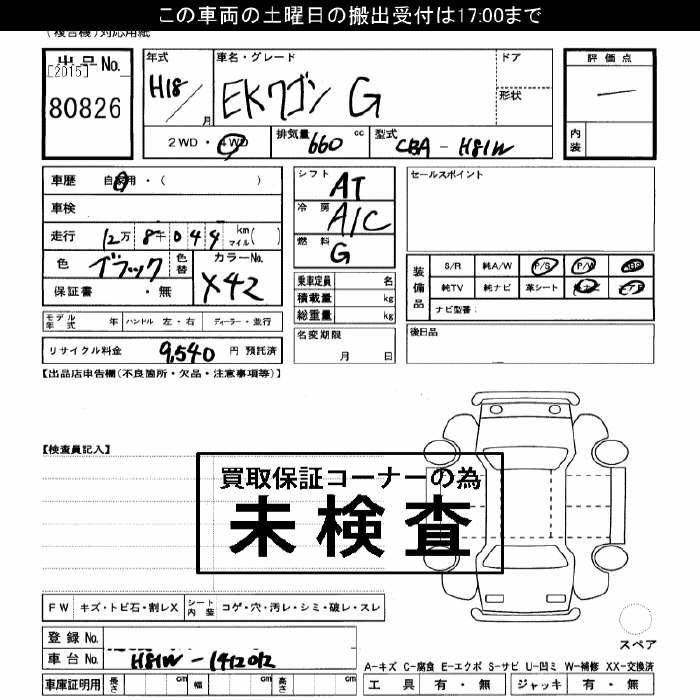 この車両の土曜日の搬出受付は17:00まで
(複合機)対応用紙
出品No.
[2015]
80826
年式 H18 / 月
車名・グレード EKワゴン G
ドア
形状
2WD・4WD
排気量 660 cc
型式 CBA-H81W
評価点
内装
車歴 自家用・( )
車検
走行 12万 8千 0 4 4 km マイル( )
色 ブラック 色替
カラーNo. X42
保証書 ・無
モデル年式 年 ハンドル 左・右 ディーラー・並行
リサイクル料金 9,540 円 預託済
シフト AT
冷房 A/C
燃料 G
乗車定員 名
積載量 kg
総重量 kg
名変期限
月 日
セールスポイント
装備品
S/R 純A/W P/S P/W ABS
純TV 純ナビ 革シート
ナビ型番:
後日品
【出品店申告欄(不良箇所・欠品・注意事項等)】
【検査員記入】
買取保証コーナーの為
未検査
FW キズ・トビ石・割レX シート内装 コゲ・穴・汚レ・シミ・破レ・スレ
登録No.
車台No. H81W-1412012
車庫証明用 長さ cm 幅 cm 高さ cm
スペア
A-キズ C-腐食 E-エクボ S-サビ U-凹ミ W-補修 XX-交換済
工具 有・無 ジャッキ 有・無